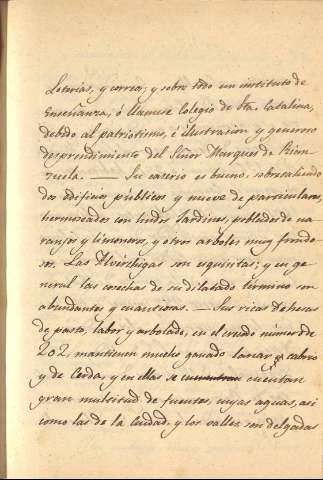 Loterias, y correo; y sobre todo un instituto de
Enseñanza, ó llamese Colegio de Sta. Catalina,
debido al patriotismo, é ilustracion y generoso
desprendimiento del Señor Marques de Rian-
zuela. — Su caserio es bueno, sobresaliendo
dos edificios públicos y nueve de particulares,
hermoseados con lindos Jardines, poblados de na
ranjos y limoneros, y otros arboles muy frondo
sos. Las Alverchigas son esquisitas; y en ge-
neral las cosechas de su dilatado termino son
abundantes y cuantiosas. — Sus ricas dehesas
de pasto, labor y arbolado, en el crecido número de
202, mantienen mucho ganado lanar, cabrio
y de Cerda, y en ellas se cuentan
gran multitud de fuentes, cuyas aguas, asi
como las de la Ciudad, y los valles, son delgadas